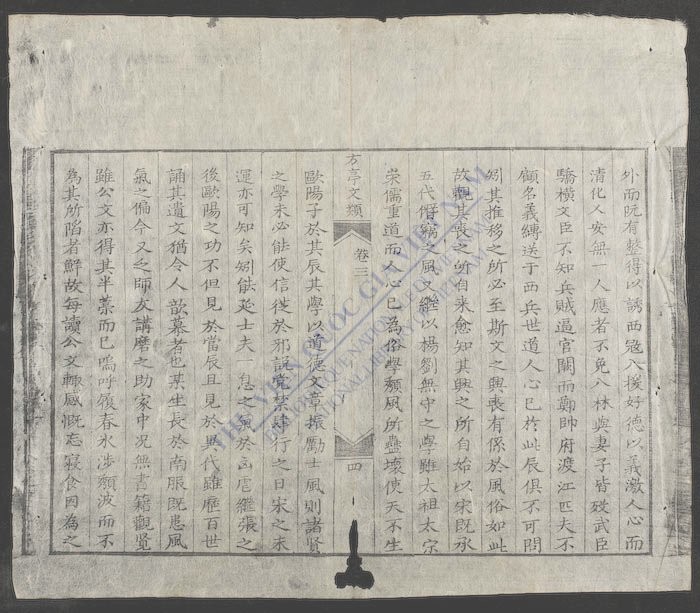 外而既有整得以誘西寇入援好德以義激人心而
清化人安無一人應者不免入林與妻子皆歿武臣
驕橫文臣不知兵賊逼官關而鄭帥府渡江匹夫不
顧名義縛送于西兵世道人心已於此辰俱不可問
矧其推移之所必至斯文之興喪有係於風俗如此
故觀其喪之所自来愈知其興之所自始以宋既承
五代儕竊之風又繼以楊劉無中之學雖太祖太宗
崇儒重道而人心已為俗學頹風所蠱壞使天不生
方亭文類 卷三 四
歐陽子於其辰其學以道德文章振勵士風則諸賢
之學未必能使信從於邪説寃禁肆行之日宋之末
運亦可知矣矧能延士夫一息之氣於𡶶崖繼張之
後歐陽之功不但見於當辰且見於異代雖歷百世
誦其遺文猶令人歆慕者也某生長於南服既患風
氣之偏今又乏師友講磨之助家中况無書籍觀覽
雖公文亦得其半藁而已嗚呼領春氷涉頹波而不
為其所陷者鮮故每讀公文輒感慨忘寢食因為之
THƯ VIỆN QUỐC GIA VIỆT NAM
BIBLIOTHÈQUE NATIONALE DU VIETNAM
NATIONAL LIBRARY OF VIETNAM